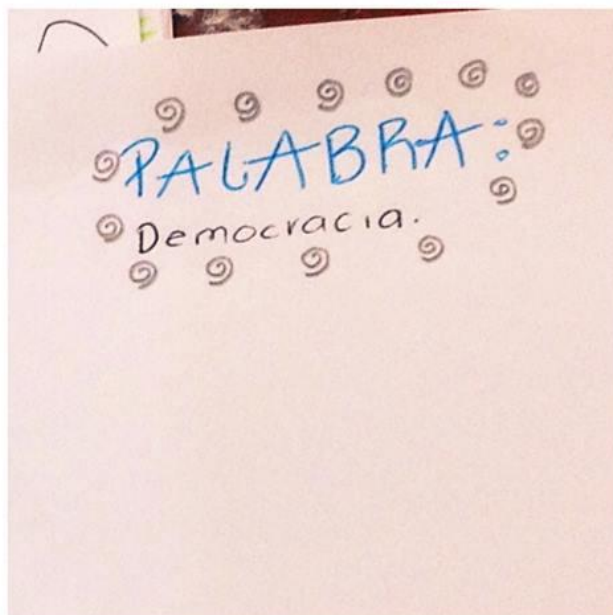 PALABRA:
Democracia.